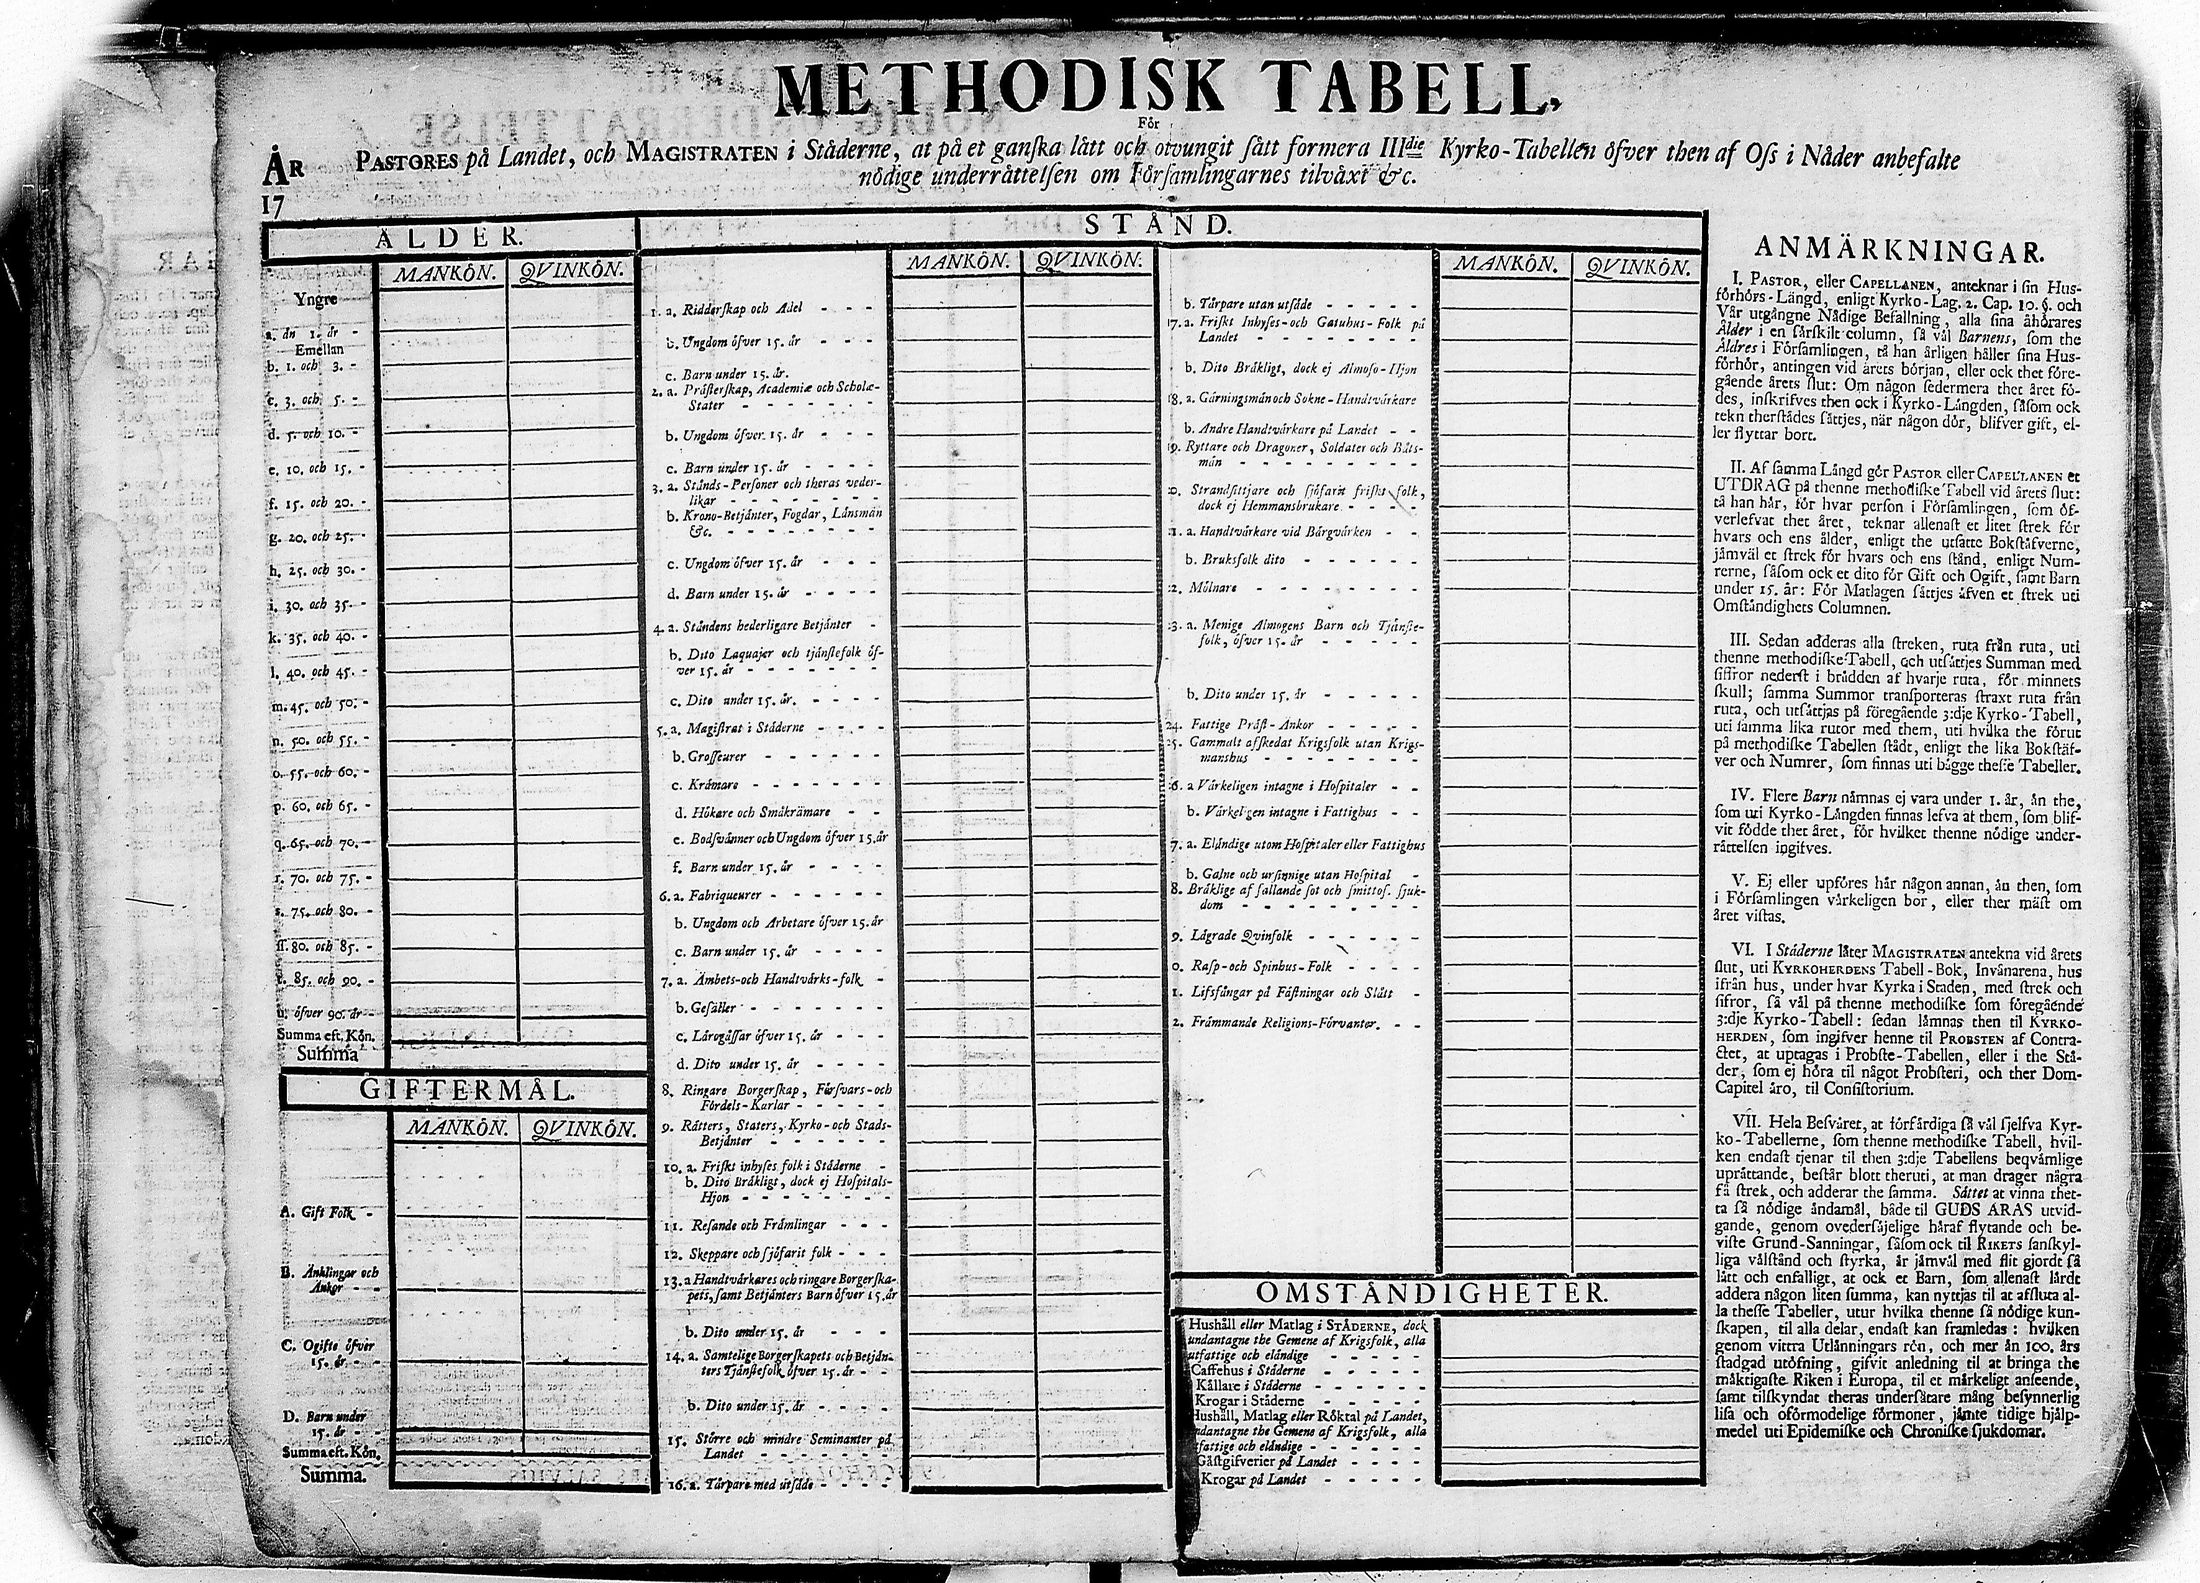 METHODISK TABELL,
För
ÅR
17
PASTORES på Landet, och MAGISTRATEN i Städerne, at på et ganſka lått och otvungit ſått formera IIIdie Kyrko-Tabellen öfver then af Oſs i Nåder anbefalte
nödige underråttelſen om Förſamlingarnes tilvåxt &c.
ÅLDER.
MANKÖN. QVINKÖN.
Yngre
a. än 1. år -
Emellan
b. 1. och 3. -
c. 3. och 5. -
d. 5. och 10. -
e. 10. och 15. -
f. 15. och 20. -
g. 20. och 25. -
h. 25. och 30. -
i. 30. och 35. -
k. 35. och 40. -
l. 40. och 45. -
m. 45. och 50. -
n. 50. och 55. -
o. 55. och 60. -
p. 60. och 65. -
q. 65. och 70. -
r. 70. och 75. -
s. 75. och 80. -
ſſ. 80. och 85. -
t. 85. och 90. -
u. öfver 90. år -
Summa eft. Kön.
Summa
GIFTERMÅL.
MANKÖN. QVINKÖN.
A. Gift Folk -
B. Änklingar och
Änkor - -
C. Ogifte öfver
15. år - -
D. Barn under
15. år - -
Summa eft. Kön.
Summa.
STÅND.
MANKÖN. QVINKÖN.
1. a. Ridderſkap och Adel - - -
b. Ungdom öfver 15. år - - -
c. Barn under 15. år.
2. a. Präſterſkap, Academiæ och Scholæ-
Stater - - - - - -
b. Ungdom öfver 15. år - - -
c. Barn under 15. år - - - -
3. a. Stånds-Perſoner och theras veder-
likar - - - - - - -
b. Krono-Betjänter, Fogdar, Länsmän
&c. - - - - - - -
c. Ungdom öfver 15. år - - -
d. Barn under 15. år - - - -
4. a. Ståndens hederligare Betjänter -
b. Dito Laquajer och tjänſtefolk öf-
ver 15. år - - - - - -
c. Dito under 15. år. - - - -
5. a. Magiſtrat i Städerne - - - -
b. Groſſeurer - - - - - -
c. Krämare - - - - - -
d. Hökare och Småkrämare - -
e. Bodſvänner och Ungdom öfver 15. år
f. Barn under 15. år - - - -
6. a. Fabriqueurer - - - - - -
b. Ungdom och Arbetare öfver 15. år
c. Barn under 15. år - - - -
7. a. Ämbets-och Handtvårks-folk -
b. Geſäller - - - - - - -
c. Lärogåſſar öfver 15. år - - -
d. Dito under 15. år - - - -
8. Ringare Borgerſkap, Förſvars-och
Fördels-Karlar - - - - -
9. Rätters, Staters, Kyrko-och Stads-
Betjänter - - - - - -
10. a. Friſkt inhyſes folk i Städerne -
b. Dito Bräkligt, dock ej Hoſpitals-
Hjon - - - - - - -
11. Reſande och Främlingar - - -
12. Skeppare och ſjöfarit folk - - -
13. a Handtvårkares och ringare Borgerſka-
pets, ſamt Betjänters Barn öfver 15. år
b. Dito under 15. år - - - -
14. a. Samtelige Borgerſkapets och Betjän-
ters Tjänſtefolk öfver 15. år - -
b. Dito under 15. år - - - -
15. Större och mindre Seminanter på
Landet - - - - - - -
16. a. Tårpare med utſäde - - - - -
MANKÖN. QVINKÖN.
b. Tårpare utan utſäde - - - - -
17. a. Friſkt Inhyſes-och Gatuhus-Folk på
Landet - - - - - - - -
b. Dito Bräkligt, dock ej Almoſo-Hjon
18. a. Gärningsmän och Sokne-Handtvårkare
b. Andre Handtvårkare på Landet - -
9. Ryttare och Dragoner, Soldater och Båts-
män - - - - - - - - -
0. Strandſittjare och ſjöfarit friſkt folk,
dock ej Hemmansbrukare - - - -
1. a. Handtvårkare vid Bärgvårken - -
b. Bruksfolk dito - - - - - -
2. Mölnare - - - - - - - -
3. a. Menige Almogens Barn och Tjänſte-
folk, öfver 15. år - - - - - -
b. Dito under 15. år - - - - -
24. Fattige Präſt-Änkor - - - - -
25. Gammalt afſkedat Krigsfolk utan Krigs-
manshus - - - - - - - -
6. a Vårkeligen intagne i Hoſpitaler - -
b. Vårkeligen intagne i Fattighus - -
7. a. Eländige utom Hoſpitaler eller Fattighus
b. Galne och urſinnige utan Hoſpital -
8. Bräklige af fallande ſot och ſmittoſ. ſjuk-
dom - - - - - - - - -
9. Lägrade Qvinfolk - - - - - -
0. Raſp-och Spinhus-Folk - - - -
1. Lifsfångar på Fäſtningar och Slått -
2. Främmande Religions-Förvanter. - -
OMSTÅNDIGHETER.
Hushåll eller Matlag i STÄDERNE, dock
undantagne the Gemene af Krigsfolk, alla
utfattige och eländige - - - - -
Caffehus i Städerne - - - - -
Källare i Städerne - - - - -
Krogar i Städerne - - - - -
Hushåll, Matlag eller Röktal på Landet,
undantagne the Gemene af Krigsfolk, alla
utfattige och eländige - - - - -
Gäſtgifverier på Landet - - - -
Krogar på Landet - - - - -
ANMÄRKNINGAR.
I. PASTOR, eller CAPELLANEN, anteknar i ſin Hus-
förhörs-Längd, enligt Kyrko-Lag. 2. Cap. 10. §. och
Vår utgångne Nådige Befallning, alla ſina åhörares
Ålder i en ſärſkilt column, ſå väl Barnens, ſom the
Äldres i Förſamlingen, tå han årligen håller ſina Hus-
förhör, antingen vid årets början, eller ock thet före-
gående årets ſlut: Om någon ſedermera thet året fö-
des, inſkrifves then ock i Kyrko-Längden, ſåſom ock
tekn therſtådes ſättjes, när någon dör, blifver gift, el-
ler flyttar bort.
II. Af ſamma Längd gör PASTOR eller CAPELLANEN et
UTDRAG på thenne methodiſke Tabell vid årets ſlut:
tå han här, för hvar perſon i Förſamlingen, ſom öf-
verlefvat thet året, teknar allenaſt et litet ſtrek för
hvars och ens ålder, enligt the utſatte Bokſtäfverne,
jämväl et ſtrek för hvars och ens ſtånd, enligt Num-
rerne, ſåſom ock et dito för Gift och Ogift, ſamt Barn
under 15. år: För Matlagen ſättjes äfven et ſtrek uti
Omſtändighets Columnen.
III. Sedan adderas alla ſtreken, ruta från ruta, uti
thenne methodiſke Tabell, och utſättjes Summan med
ſiffror nederſt i brådden af hvarje ruta, för minnets
ſkull; ſamma Summor tranſporteras ſtraxt ruta från
ruta, och utſättjas på föregående 3:dje Kyrko-Tabell,
uti ſamma lika rutor med them, uti hvilka the förut
på methodiſke Tabellen ſtådt, enligt the lika Bokſtäf-
ver och Numrer, ſom finnas uti bägge theſſe Tabeller.
IV. Flere Barn nämnas ej vara under 1. år, än the,
ſom uti Kyrko-Längden finnas lefva at them, ſom blif-
vit födde thet året, för hvilket thenne nödige under-
rättelſen ingifves.
V. Ej eller upföres här någon annan, än then, ſom
i Förſamlingen vårkeligen bor, eller ther mäſt om
året viſtas.
VI. I Städerne låter MAGISTRATEN antekna vid årets
ſlut, uti KYRKOHERDENS Tabell-Bok, Invånarena, hus
ifrån hus, under hvar Kyrka i Staden, med ſtrek och
ſifror, ſå väl på thenne methodiſke ſom föregående
3:dje Kyrko-Tabell: ſedan lämnas then til KYRKO-
HERDEN, ſom ingifver henne til PROBSTEN af Contra-
ctet, at uptagas i Probſte-Tabellen, eller i the Stä-
der, ſom ej höra til något Probſteri, och ther Dom-
Capitel äro, til Conſiſtorium.
VII. Hela Beſväret, at förfärdiga ſå väl ſjelfva Kyr-
ko-Tabellerne, ſom thenne methodiſke Tabell, hvil-
ken endaſt tjenar til then 3:dje Tabellens beqvämlige
uprättande, beſtår blott theruti, at man drager några
få ſtrek, och adderar the ſamma. Sättet at vinna thet-
ta ſå nödige åndamål, både til GUDS ÄRAS utvid-
gande, genom overderſäjelige häraf flytande och be-
viſte Grund-Sanningar, ſåſom ock til RIKETS ſanſkyl-
liga välſtånd och ſtyrka, är jämväl med flit gjordt ſå
lätt och enfalligt, at ock et Barn, ſom allenaſt lärdt
addera någon liten ſumma, kan nyttjas til at afſluta al-
la theſſe Tabeller, utur hvilka thenne ſå nödige kun-
ſkapen, til alla delar, endaſt kan framledas: hvilken
genom vittra Utlänningars rön, och mer än 100. års
ſtadgad utöfning, gifvit anledning til at bringa the
mäktigaſte Riken i Europa, til et märkeligt anſeende,
ſamt tilſkyndat theras underſåtare mång beſynnerlig
liſa och oförmodelige förmoner, jämte tidige hjälp-
medel uti Epidemiſke och Chroniſke ſjukdomar.